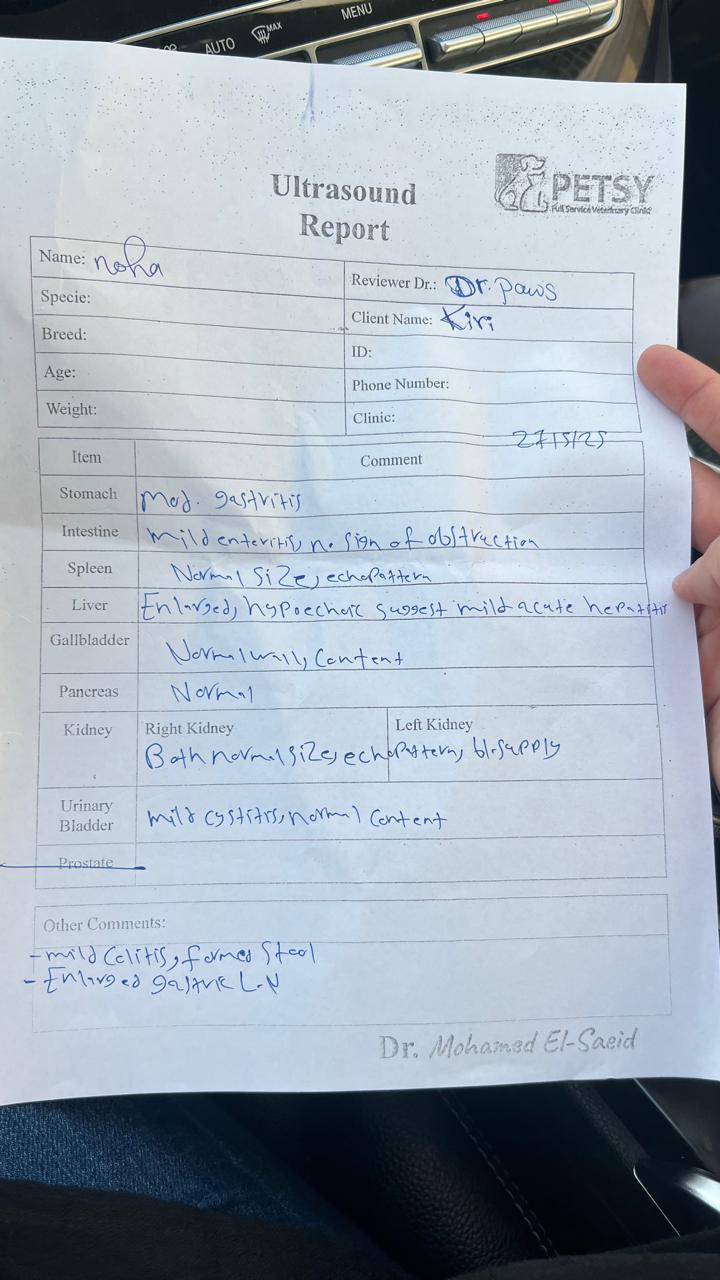 AUTO
MAX
MENU
PETSY
Full Service Veterinary Clinic
Ultrasound
Report
Name: noha
Reviewer Dr.: Dr. paws
Specie:
Client Name: Kiri
Breed:
ID:
Age:
Phone Number:
Weight:
Clinic:
27/5/25
Item Comment
Stomach Mod. gastritis
Intestine mild enteritis, no sign of obstruction
Spleen Normal size, echopattern
Liver Enlarged, hypoechoic suggest mild acute hepatitis
Gallbladder Normal wall, content
Pancreas Normal
Kidney Right Kidney Left Kidney
Both normal size, echopattern, bl. supply
Urinary
Bladder mild cystitis, normal content
Prostate
Other Comments:
- mild colitis, formed stool
- Enlarged gastric L.N
Dr. Mohamed El-Saeid